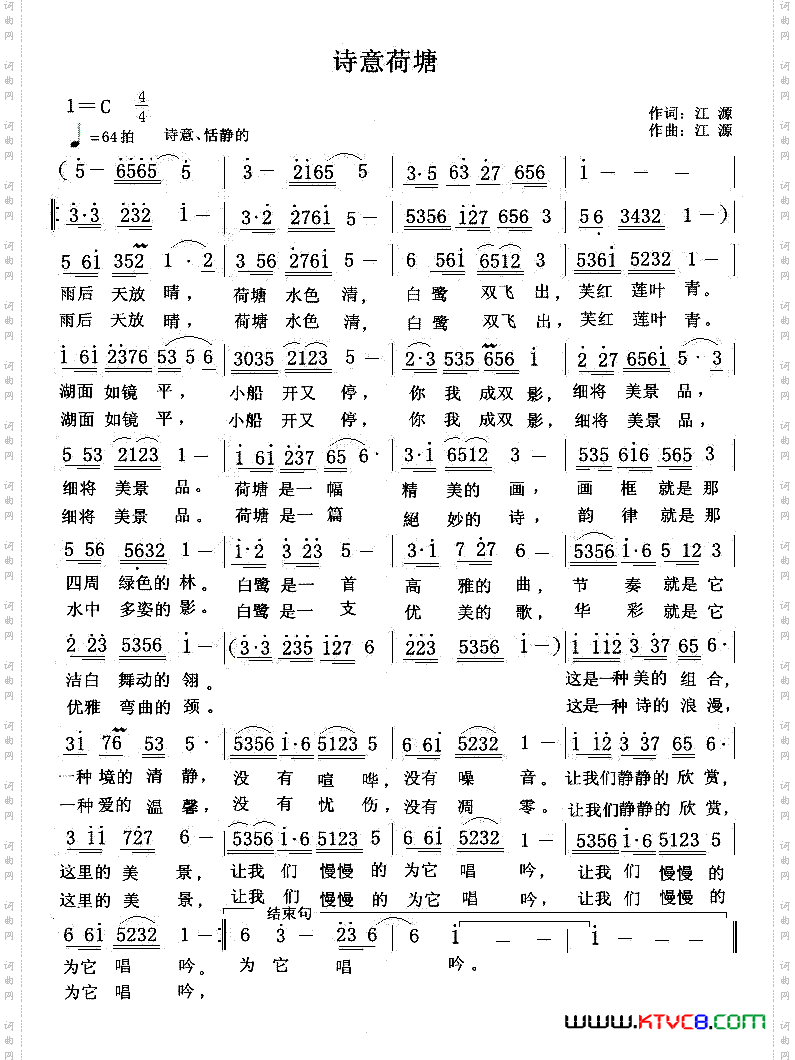 诗意荷塘
1=C 4/4
作词:江 源
♩=64拍 诗意、恬静的
作曲:江 源
(5- 6565 5 | 3- 2165 5 | 3·5 63 27 656 | 1 - - - |
‖: 3·3 232 1- | 3·2 2761 5- | 5356 127 656 3 | 56 3432 1-) |
5 61 352 1·2 | 3 56 2761 5- | 6 561 6512 3 | 5361 5232 1- |
雨后 天放 晴, 荷塘 水色 清, 白鹭 双飞 出, 芙红 莲叶 青。
雨后 天放 晴, 荷塘 水色 清, 白鹭 双飞 出, 芙红 莲叶 青。
1 61 2376 53 5 6 | 3035 2123 5- | 2·3 535 656 1 | 2 27 6561 5·3 |
湖面 如镜 平, 小船 开又 停, 你 我 成双 影, 细将 美景 品,
湖面 如镜 平, 小船 开又 停, 你 我 成双 影, 细将 美景 品,
5 53 2123 1- | 1 61 237 65 6· | 3·1 6512 3- | 535 616 565 3 |
细将 美景 品。 荷塘 是一 幅 精 美的 画, 画 框 就是 那
细将 美景 品。 荷塘 是一 篇 絕 妙的 诗, 韵 律 就是 那
5 56 5632 1- | 1·2 3 23 5- | 3·1 7 27 6· | 5356 1·6 5 12 3 |
四周 绿色的 林。 白鹭 是一 首 高 雅的 曲, 节 奏 就是 它
水中 多姿的 影。 白鹭 是一 支 优 美的 歌, 华 彩 就是 它
2 23 5356 1- | (3·3 235 127 6 | 223 535 6561 5) | 1 112 3 37 65 6· |
洁白 舞动的 翎。 这是一种 美的 组合,
优雅 弯曲的 颈。 这是一种 诗的 浪漫,
31 76 53 5· | 5356 1·6 5123 5 | 6 61 5232 1- | 1 112 3 37 65 6· |
一种 境的 清静, 没 有 喧 哗, 没有 噪 音。 让我们静静的 欣赏,
一种 爱的 温馨, 没 有 忧 伤, 没有 凋 零。 让我们静静的 欣赏,
3 11 727 6- | 5356 1·6 5123 5 | 6 61 5232 1- | 5356 1·6 5123 5 |
这里的 美 景, 让我 们 慢慢 的 为它 唱 吟, 让我 们 慢慢 的
这里的 美 景, 让我 们 慢慢 的 为它 唱 吟, 让我 们 慢慢 的
结束句
6 61 5232 1- :‖ 6 3- 23 6 | 6 1 - - | 1 - - - ‖
为它 唱 吟。 为 它 唱 吟。
为它 唱 吟,
www.KTVC8.com
词曲网